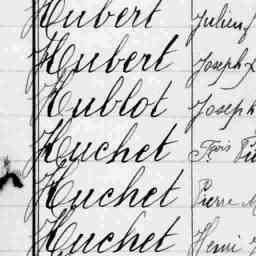 Hubert Julien
Hubert Joseph
Hublot Joseph
Huchet Fçois
Huchet Pierre M
Huchet Henri